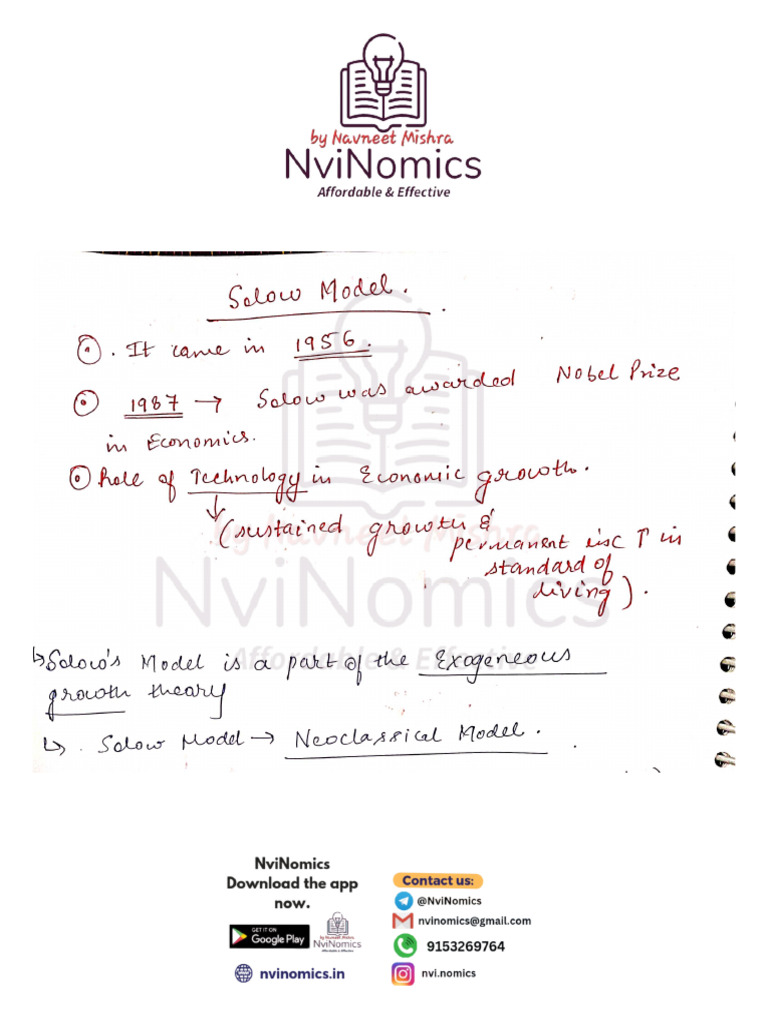 by Navneet Mishra
NviNomics
Affordable & Effective
Solow Model.
. It came in 1956.
1987 → Solow was awarded Nobel Prize
in Economics.
Role of Technology in Economic growth.
↓
(sustained growth &
permanent inc ↑ in
standard of
living).
by Navneet Mishra
NviNomics
Affordable & Effective
↳ Solow's Model is a part of the Exogeneous
growth theory
↳ . Solow Model → Neoclassical Model.
NviNomics
Download the app
now.
GET IT ON
Google Play
by Navneet Mishra
NviNomics
Affordable & Effective
nvinomics.in
Contact us:
@NviNomics
nvinomics@gmail.com
9153269764
nvi.nomics